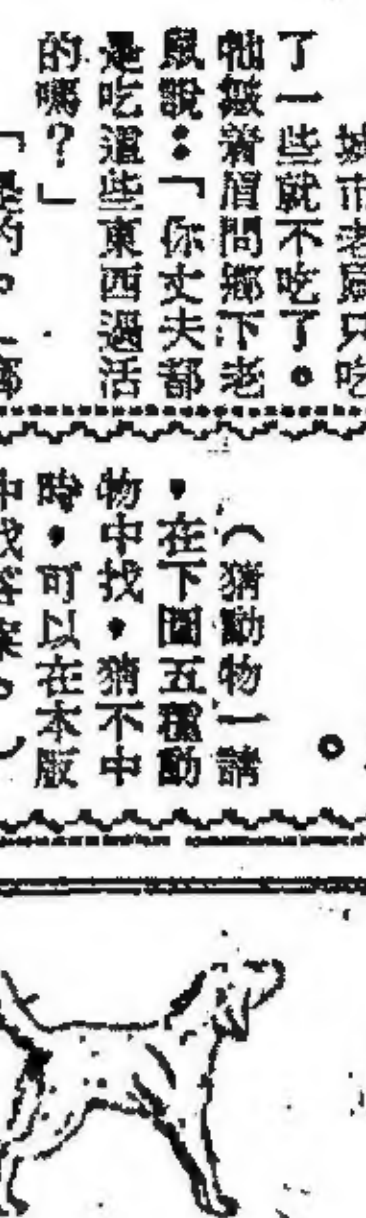 城市老鼠只吃
了一些就不吃了。
牠皺着眉問鄉下老
鼠說：「你丈夫都
是吃這些東西過活
的嗎？」
「是的。」鄉
。
（猜動物一請
，在下圖五種動
物中找，猜不中
時，可以在本版
中找答案。）